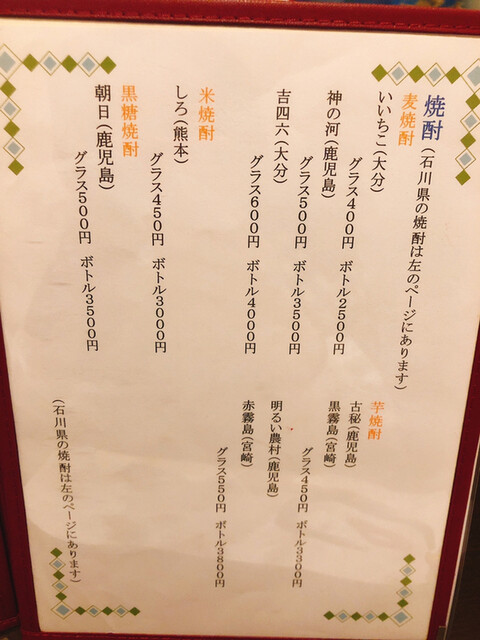 焼酎(石川県の焼酎は左のページにあります)
麦焼酎
いいちこ(大分)
グラス400円 ボトル2500円
神の河(鹿児島)
グラス500円 ボトル3500円
吉四六(大分)
グラス600円 ボトル4000円
米焼酎
しろ(熊本)
グラス450円 ボトル3000円
黒糖焼酎
朝日(鹿児島)
グラス500円 ボトル3500円
芋焼酎
古秘(鹿児島)
黒霧島(宮崎)
グラス450円 ボトル3300円
明るい農村(鹿児島)
赤霧島(宮崎)
グラス550円 ボトル3800円
(石川県の焼酎は左のページにあります)